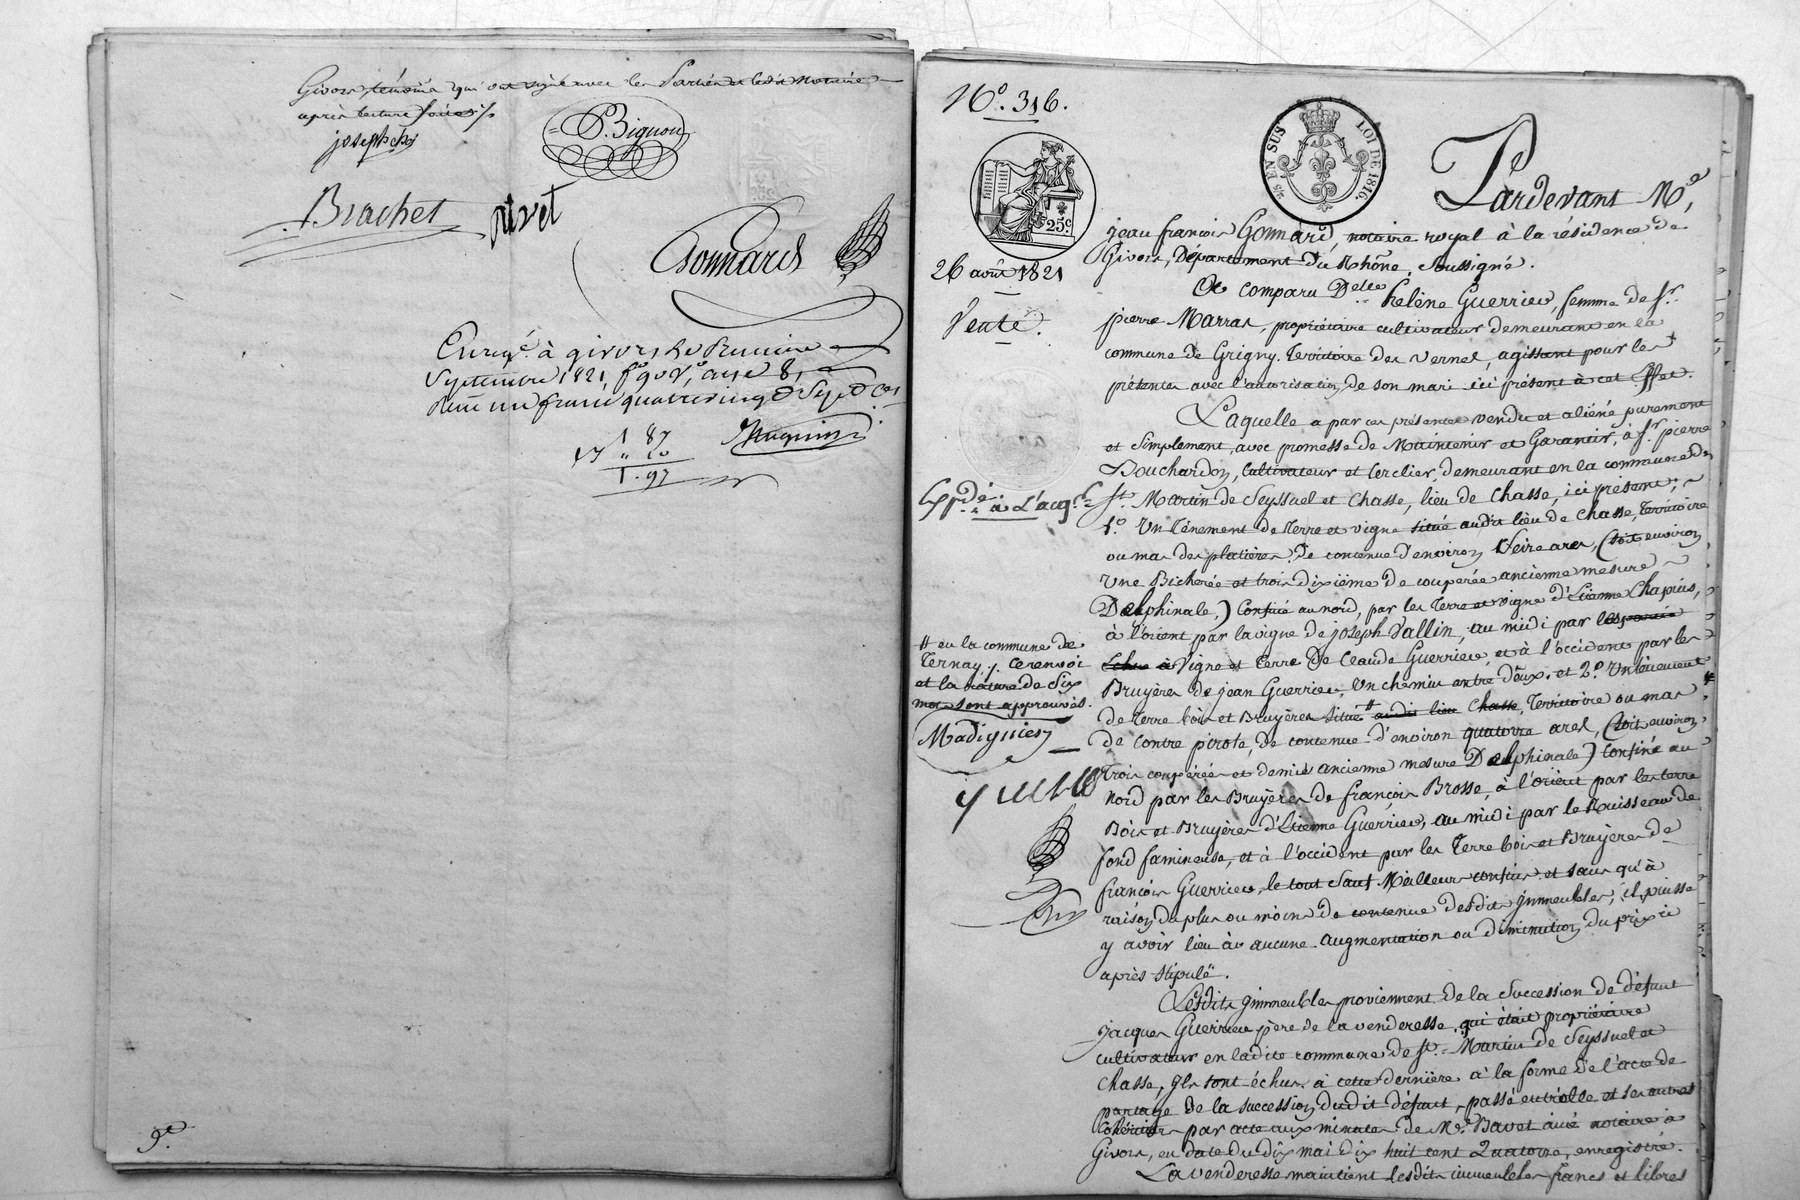 Givors, témoins qui ont signé avec les Parties et ledit Notaire
après lecture faite ./.
joseph
P. Bignon
Brachet
rivet
Gonnard
Enregé. à givors le Premier
Septembre 1821, f° 90 V°, case 8,
reçu un franc quatre vingt Sept Ces
1 87
" 10
1.97
9e.
N°. 316.
25c.
5/2 EN SUS LOI DE 1816.
26 août 1821
Vente.
Pardevant Me,
jean françois Gonnard, notaire royal à la résidence de
Givors, Département du Rhône, soussigné.
A comparu Delle. helène Guerrier, femme de Sr.
pierre Marras, propriétaire cultivateur demeurant en la
commune de Grigny, Territoire des Vernes, agissant pour les
présentes avec l'autorisation de son mari ici présent à cet Effet.
Laquelle a par ces présentes vendu et aliéné purement
et simplement, avec promesse de Maintenir et Garantir, à Sr. pierre
Bouchardon, Cultivateur et Cerclier, demeurant en la commune de
St. Martin de Seyssuel et Chasse, lieu de Chasse, ici présent;
Expde. à L'acq.
1.° Un Ténement de terre et vigne situé audit lieu de Chasse, Territoire
ou mas des platières de contenue d'environ Seize ares, (soit environ
Une Bicherée et trois dixième de couperée ancienne mesure
Delphinale,) Confiné au nord, par les Terre et vigne d'Etienne Chapuis,
à l'orient par la vigne de joseph Vallin, au midi par
Vigne et terre De Claude Guerrier, et à l'occident par les
Bruyères de jean Guerrier, Un chemin entre d'eux. et 2.° Un tènement
de terre bois et Bruyères situé # audit lieu Chasse, Territoire ou mas
de Contre pirote, de contenue d'environ quatorze ares, (soit environ
# en la commune de
Ternay ./. ce renvoi
et la rature de Six
mots sont approuvés.
Madignier
trois couperées et demie ancienne mesure Delphinale) Confiné au
nord par les Bruyères de françois Brosse, à l'orient par les terre
Bois et Bruyères d'Etienne Guerrier, au midi par le Ruisseau de
fond famineuse, et à l'occident par les Terre bois et Bruyères de
françois Guerrier, le tout Sauf Meilleurs confins et sans qu'à
raison du plus ou moins de contenue desdits jmmeubles, il puisse
y avoir lieu à aucune augmentation ou diminution du prix ci
après stipulé.
Lesdits jmmeubles proviennent de la Succession de défunt
jacques Guerrier père de la venderesse, qui était propriétaire
cultivateur en ladite commune de St. Martin de Seyssuel et
Chasse, jls sont échus à cette dernière à la forme de l'acte de
partage de la succession dudit défunt, passé entr'elle et ses autres
Cohéritiers par acte aux minutes de Me. Bavet aîné notaire à
Givors, en date du dix mai dix huit cent Quatorze, enregistré.
La venderesse maintient lesdits immeubles francs et libres